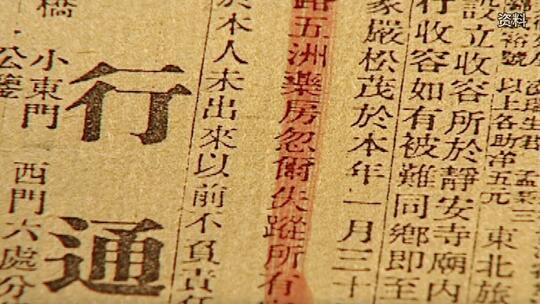 资料
以上各助洋五元 東北旅
設立收容所於靜安寺廟內
行收容如有被難同鄉即至
家嚴松茂於本年一月三十
路五洲藥房忽爾失蹤所有
於本人未出來以前不負責任
行通
橋 小東門 西門六處分
公鑒